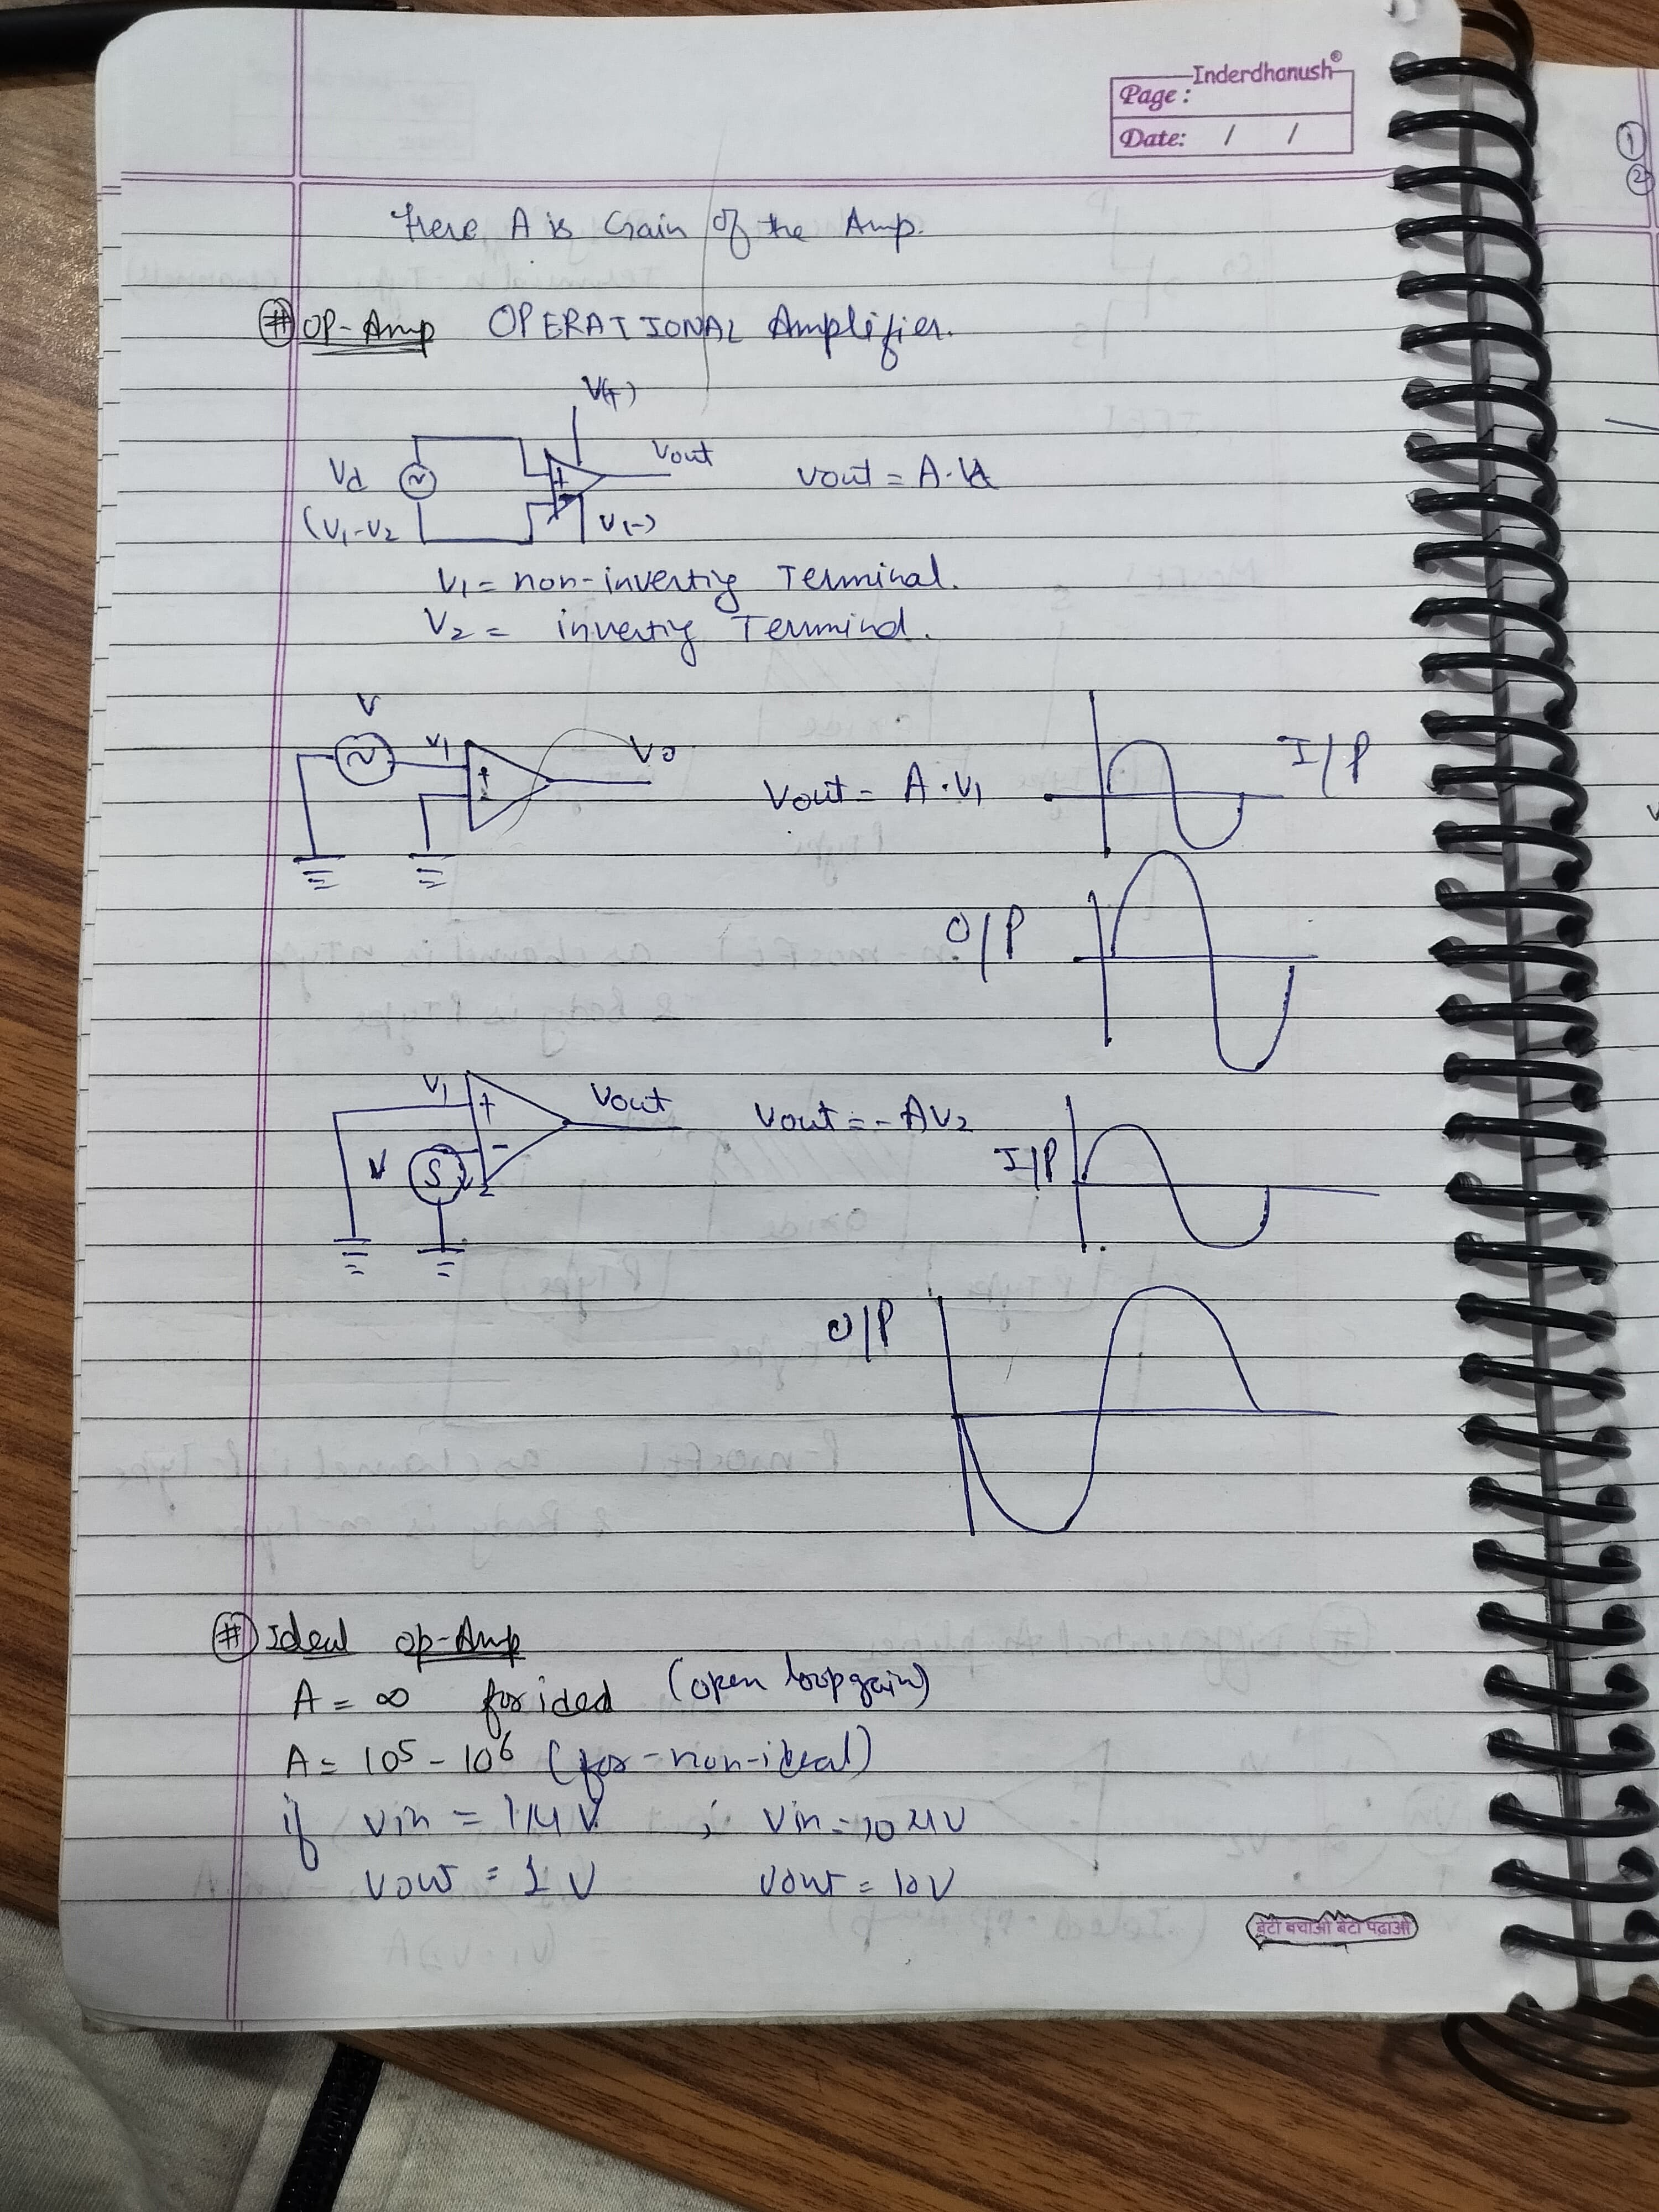 Inderdhanush®
Page :
Date: / /
①
②
Here A is Gain of the Amp.
# OP-Amp OPERATIONAL Amplifier.
V(+)
Vd
Vout
Vout = A.Vd
+
(V1-V2
V(-)
V1 = non-invertig Terminal.
V2 = invertig Terminal.
V
V1
Vo
+
-
Vout = A.V1
I/P
O/P
V1
Vout
+
-
Vout = -AV2
V
V2
I/P
O/P
# Ideal op-Amp
A = ∞ for ideal (open loop gain)
A = 10⁵ - 10⁶ (for-non-ideal)
if Vin = 1μV ; Vin = 10 μV
Vout = 1 V Vout = 10V
बेटी बचाओ बेटी पढ़ाओ